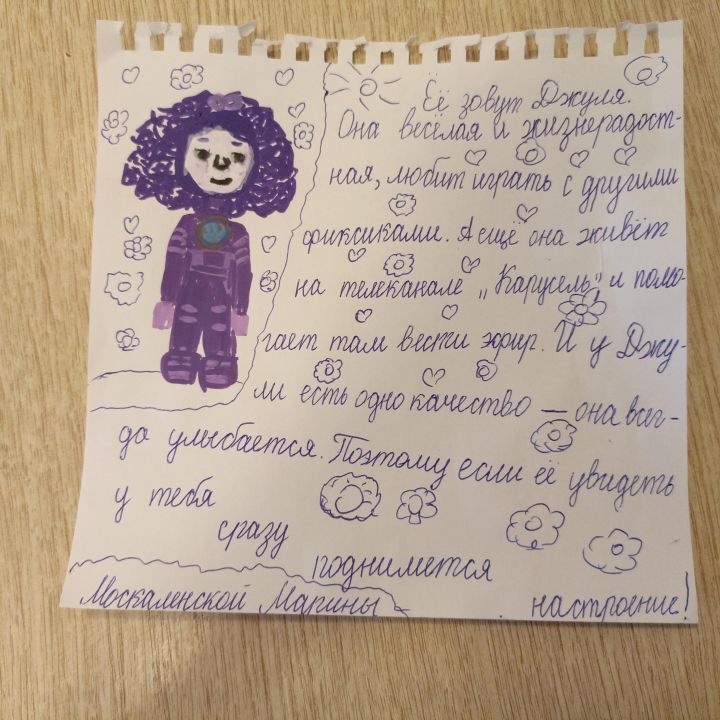 Её зовут Джуля.
Она весёлая и жизнерадост-
ная, любит играть с другими
фиксиками. А ещё она живёт
на телеканале „Карусель" и помо-
гает там вести эфир. И у Джу-
ли есть одно качество — она всег-
да улыбается. Поэтому если её увидеть
у тебя
сразу
поднимется
настроение!
Москаленской Марины